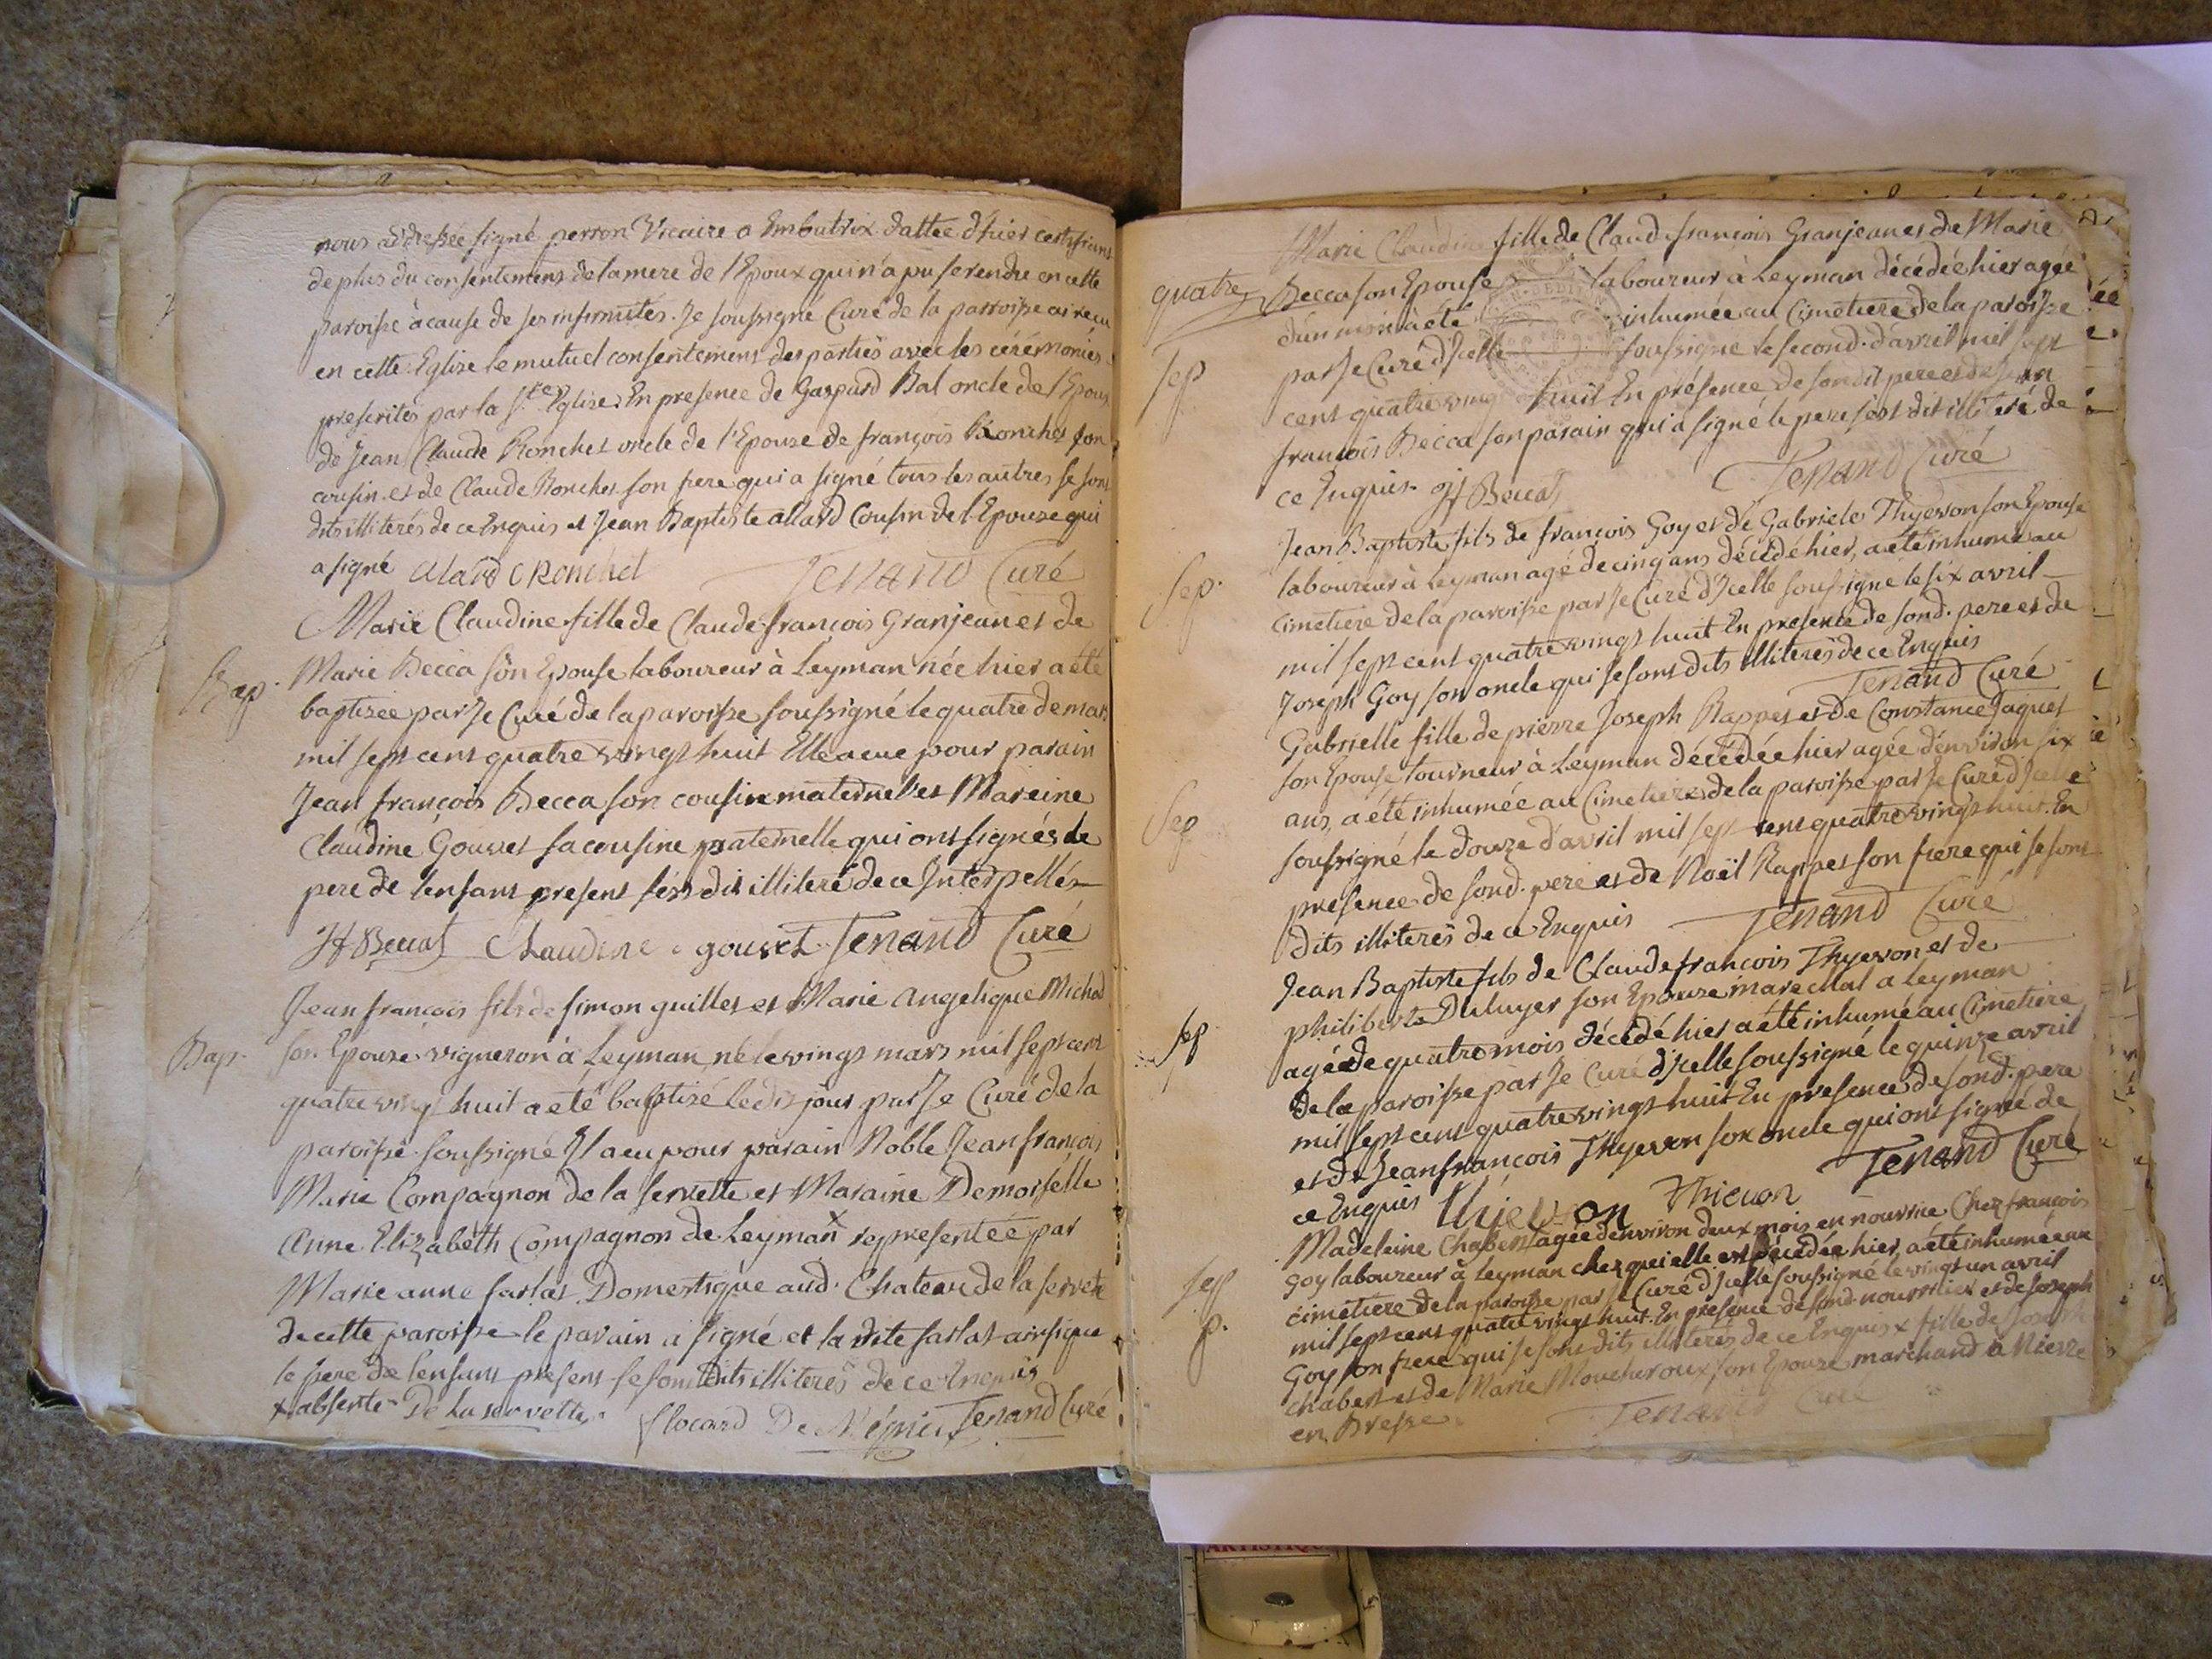 nous adressée signé perron Vicaire a Embutrix dattée d'hier certifiant
de plus du consentement de la mere de l'Epoux qui n'a pu se rendre en cette
paroisse à cause de ses infirmités. Je soussigné Curé de la paroisse ai recu
en cette Eglise le mutuel consentement des parties avec les cérémonies
prescrites par la Ste Eglise. En presence de Gaspard Bal oncle de l'Epoux
de Jean Claude Ronchet oncle de l'Epouse de françois Ronchet son
cousin et de Claude Ronchet son frere qui a signé tous les autres se sont
dits illiterés de ce Enquis et Jean Baptiste allard Cousin de l'Epouze qui
a signé alard C Ronchet Tenand Curé
Marie Claudine fille de Claude françois Granjean et de
Bap. Marie Becca son Epouse laboureur à Leyman née hier a été
baptisée par Je Curé de la paroisse soussigné le quatre de mars
mil sept cent quatre vingt huit Elle a eue pour parain
Jean françois Becca son cousin maternel et Mareine
Claudine Gouvet sa cousine paternelle qui ont signés le
pere de l'enfant present s'est dit illiteré de ce Interpellés
Jf Beccat Claudine gouvet Tenand Curé
Jean françois fils de simon guillet et Marie Angelique Michod
Bap. son Epouse vigneron à Leyman né le vingt mars mil sept cent
quatre vingt huit a eté baptisé ledit jour par Je Curé de la
paroisse soussigné Il a eu pour parain Noble Jean françois
Marie Compagnon de la servette et Maraine Demoiselle
Anne Elizabeth Compagnon de Leyman x representée par
Marie anne farlat Domestique aud. Chateau de la servete
de cette paroisse le parain a signé et la dite farlat ainsi que
le pere de l'enfant present se sont dits illiterés de ce Enquis
x absente De La servette flocard De Mépieu Tenand Curé
Marie Claudine fille de Claude francois Granjean et de Marie
quatre Becca son Epouse laboureur à Leyman décédée hier agée
d'un mois à été inhumée au Cimetiere de la paroisse
Sep par Je Curé d'Icelle soussigné le second d'avril mil sept
cent quatre vingt huit En présence de sondit pere et de Jean
francois Becca son parain qui a signé le pere s'est dit illiteré de
ce Enquis Jf Beccat Tenand Curé
Jean Baptiste fils de francois Goy et de Gabriele Thyevon son Epouse
Sep. laboureur à Leyman agé de cinq ans décédé hier, a eté inhumé au
Cimetiere de la paroisse par Je Curé d'Icelle soussigné le six avril
mil sept cent quatre vingt huit En presence de sond. pere et de
Joseph Goy son oncle qui se sont dits illiterés de ce Enquis
Tenand Curé
Gabrielle fille de pierre Joseph Rappet et de Constance Jaquet
son Epouse tourneur à Leyman décédée hier agée d'environ six
Sep ans, a été inhumée au Cimetiere de la paroisse par Je Curé d'Icelle
soussigné le douze d'avril mil sept cent quatre vingt huit. En
presence de sond. pere et de Noël Rappet son frere qui se sont
dits illiterés de ce Enquis Tenand Curé
Jean Baptiste fils de Claude francois Thyevon et de
Sep philiberte Duluyer son Epouze marechal a Leyman
agé de quatre mois décédé hier a été inhumé au Cimetiere
de la paroisse par Je Curé d'Icelle soussigné le quinze avril
mil sept cent quatre vingt huit En presence de sond. pere
et de Jean francois Thyevon son oncle qui ont signé de
ce Enquis thievon Thievon Tenand Curé
Madeleine Chabert agée d'environ deux mois en nourrice Chez francois
Sep Goy laboureur à Leyman chez qui elle est décédée hier, a été inhumée au
p. cimetiere de la paroisse par Je Curé d'Icelle soussigné le vingt un avril
mil sept cent quatre vingt huit. En presence de sond. nourricier et de Joseph
Goy son frere qui se sont dits illiterés de ce Enquis x fille de Joseph
chabert et de Marie Moucheroux son Epouze marchand à Mierre
en Bresse Tenand Curé